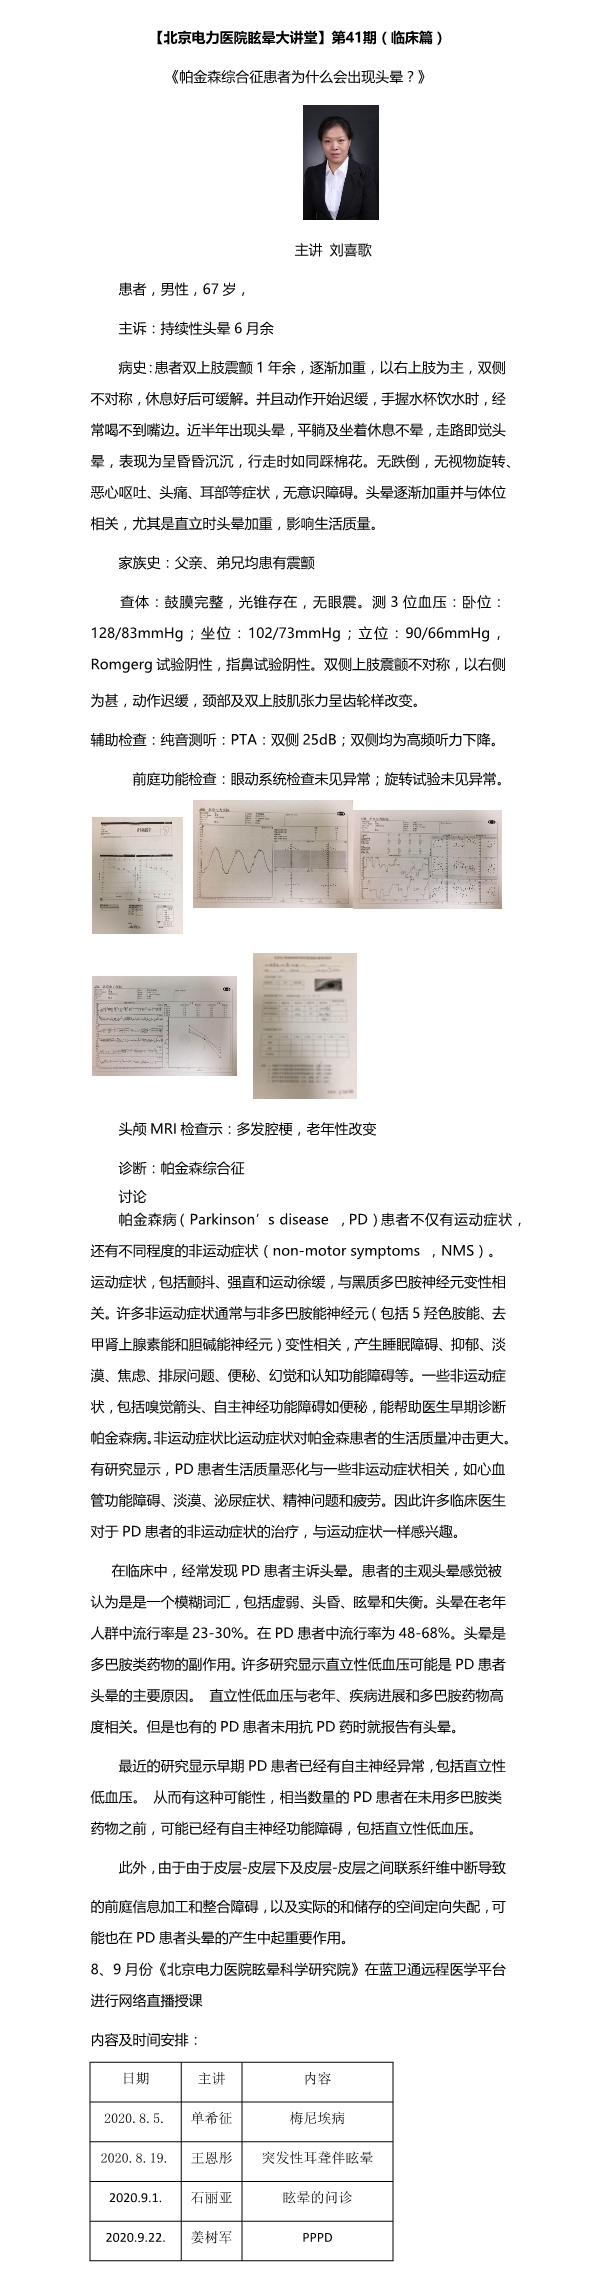 【北京电力医院眩晕大讲堂】第41期（临床篇）
《帕金森综合征患者为什么会出现头晕？》
主讲 刘喜歌
患者，男性，67岁，
主诉：持续性头晕6月余
病史：患者双上肢震颤1年余，逐渐加重，以右上肢为主，双侧
不对称，休息好后可缓解。并且动作开始迟缓，手握水杯饮水时，经
常喝不到嘴边。近半年出现头晕，平躺及坐着休息不晕，走路即觉头
晕，表现为呈昏昏沉沉，行走时如同踩棉花。无跌倒，无视物旋转、
恶心呕吐、头痛、耳部等症状，无意识障碍。头晕逐渐加重并与体位
相关，尤其是直立时头晕加重，影响生活质量。
家族史：父亲、弟兄均患有震颤
查体：鼓膜完整，光锥存在，无眼震。测3位血压：卧位：
128/83mmHg；坐位：102/73mmHg；立位：90/66mmHg，
Romgerg试验阴性，指鼻试验阴性。双侧上肢震颤不对称，以右侧
为甚，动作迟缓，颈部及双上肢肌张力呈齿轮样改变。
辅助检查：纯音测听：PTA：双侧25dB；双侧均为高频听力下降。
前庭功能检查：眼动系统检查未见异常；旋转试验未见异常。
头颅MRI检查示：多发腔梗，老年性改变
诊断：帕金森综合征
讨论
帕金森病（Parkinson’s disease ，PD）患者不仅有运动症状，
还有不同程度的非运动症状（non-motor symptoms ，NMS）。
运动症状，包括颤抖、强直和运动徐缓，与黑质多巴胺神经元变性相
关。许多非运动症状通常与非多巴胺能神经元（包括5羟色胺能、去
甲肾上腺素能和胆碱能神经元）变性相关，产生睡眠障碍、抑郁、淡
漠、焦虑、排尿问题、便秘、幻觉和认知功能障碍等。一些非运动症
状，包括嗅觉箭头、自主神经功能障碍如便秘，能帮助医生早期诊断
帕金森病。非运动症状比运动症状对帕金森患者的生活质量冲击更大。
有研究显示，PD患者生活质量恶化与一些非运动症状相关，如心血
管功能障碍、淡漠、泌尿症状、精神问题和疲劳。因此许多临床医生
对于PD患者的非运动症状的治疗，与运动症状一样感兴趣。
在临床中，经常发现PD患者主诉头晕。患者的主观头晕感觉被
认为是是一个模糊词汇，包括虚弱、头昏、眩晕和失衡。头晕在老年
人群中流行率是23-30%。在PD患者中流行率为48-68%。头晕是
多巴胺类药物的副作用。许多研究显示直立性低血压可能是PD患者
头晕的主要原因。 直立性低血压与老年、疾病进展和多巴胺药物高
度相关。但是也有的PD患者未用抗PD药时就报告有头晕。
最近的研究显示早期PD患者已经有自主神经异常，包括直立性
低血压。 从而有这种可能性，相当数量的PD患者在未用多巴胺类
药物之前，可能已经有自主神经功能障碍，包括直立性低血压。
此外，由于由于皮层-皮层下及皮层-皮层之间联系纤维中断导致
的前庭信息加工和整合障碍，以及实际的和储存的空间定向失配，可
能也在PD患者头晕的产生中起重要作用。
8、9月份《北京电力医院眩晕科学研究院》在蓝卫通远程医学平台
进行网络直播授课
内容及时间安排：
日期 主讲 内容
2020.8.5. 单希征 梅尼埃病
2020.8.19. 王恩彤 突发性耳聋伴眩晕
2020.9.1. 石丽亚 眩晕的问诊
2020.9.22. 姜树军 PPPD